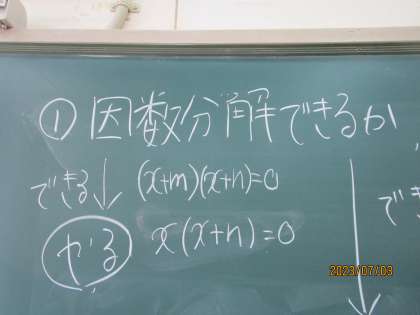 ① 因数分解できるか
できる (x+m)(x+n)=0
やる x(x+n)=0
でき
2023/07/03